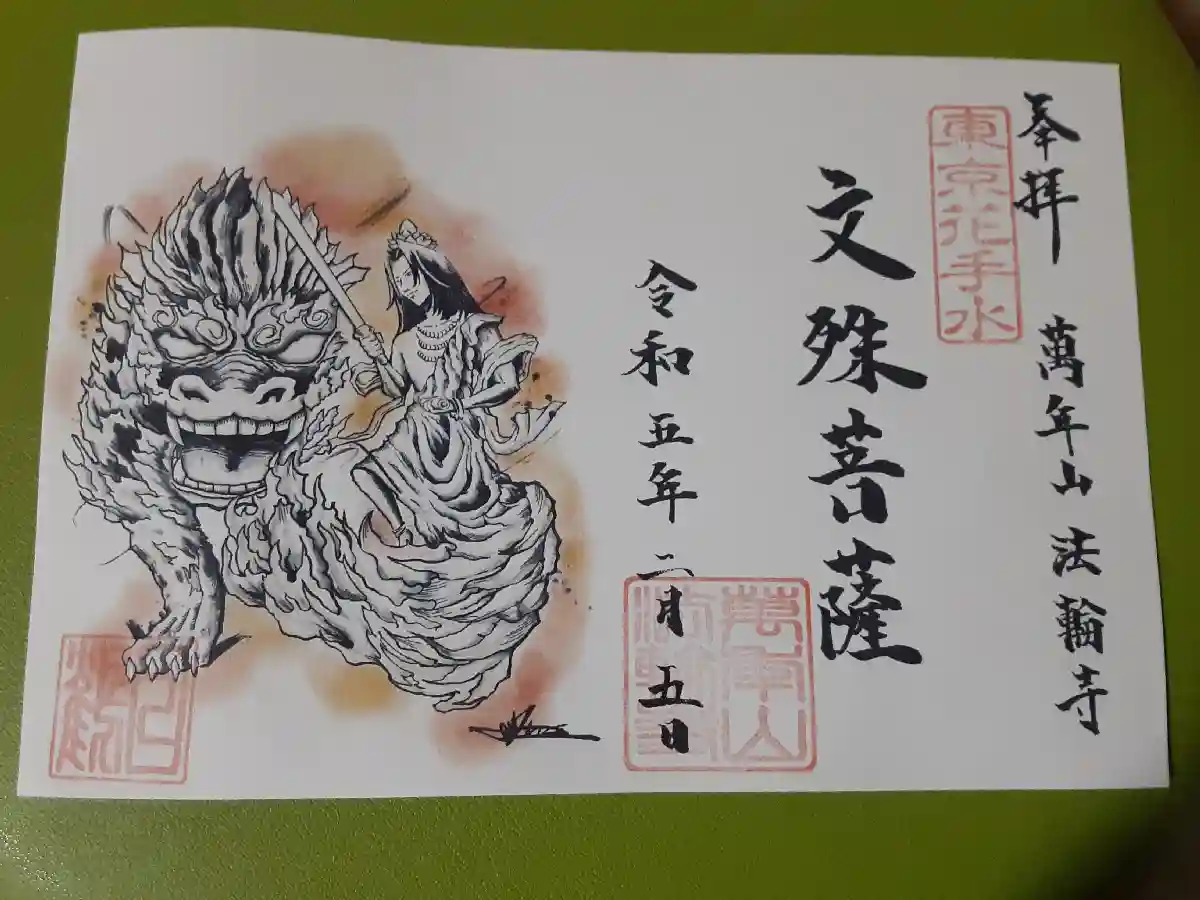 奉拝
萬年山 法輪寺
東京花手水
文殊菩薩
令和五年二月五日
萬年山
法輪寺